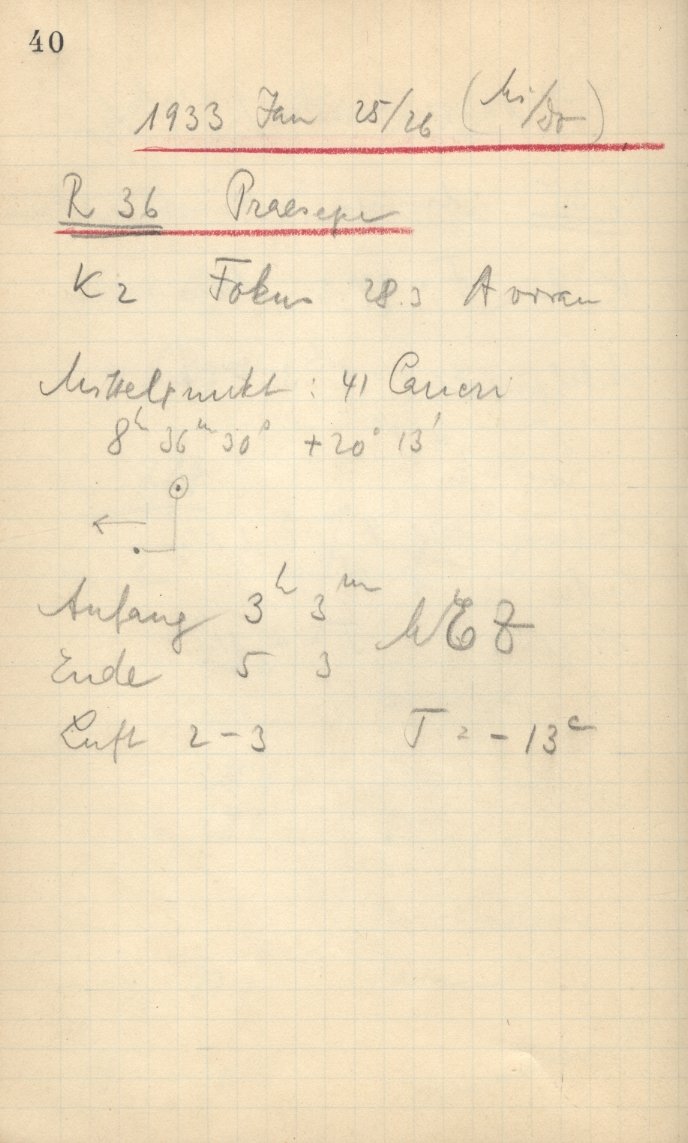 40
1933 Jan 25/26 (Mi/Do)
R 36 Praesepe
K 2 Fokus 28.3 A voran
Mittelpunkt : 41 Cancri
8h 36m 30s +20° 13'
Anfang 3h 3m MEZ
Ende 5 3
Luft 2-3 T = -13c